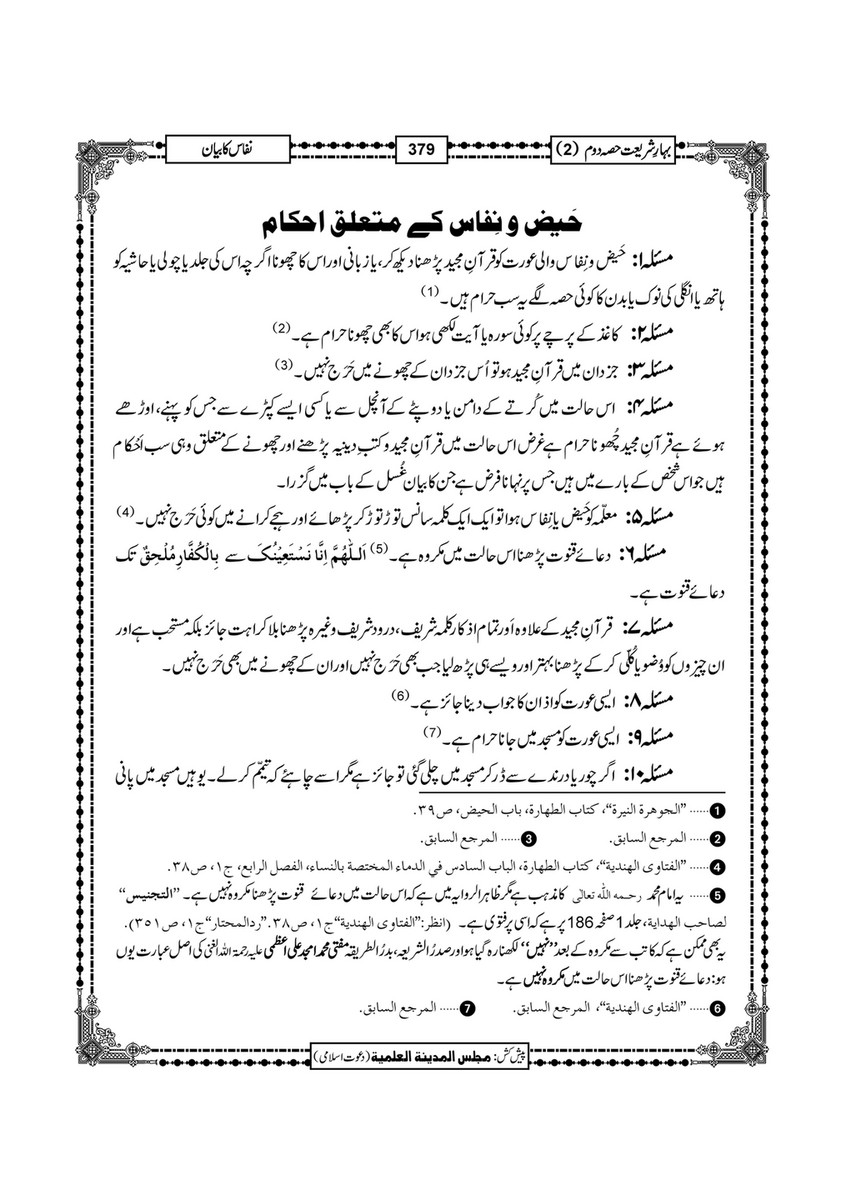 بہارِ شریعت حصہ دوم (2)
379
نفاس کا بیان
حَیض و نِفاس کے متعلق احکام
مسئلہ ۱: حَیض و نِفاس والی عورت کو قرآنِ مجید پڑھنا دیکھ کر، یا زبانی اور اس کا چھونا اگرچہ اس کی جلد یا چولی یا حاشیہ کو
ہاتھ یا انگلی کی نوک یا بدن کا کوئی حصہ لگے یہ سب حرام ہیں۔ (1)
مسئلہ ۲: کاغذ کے پرچے پر کوئی سورہ یا آیت لکھی ہو اس کا بھی چھونا حرام ہے۔ (2)
مسئلہ ۳: جزدان میں قرآنِ مجید ہو تو اُس جزدان کے چھونے میں حَرَج نہیں۔ (3)
مسئلہ ۴: اس حالت میں کُرتے کے دامن یا دوپٹے کے آنچل سے یا کسی ایسے کپڑے سے جس کو پہنے، اوڑھے
ہوئے ہے قرآنِ مجید چُھونا حرام ہے غرض اس حالت میں قرآنِ مجید و کتبِ دینیہ پڑھنے اور چھونے کے متعلق وہی سب اَحْکام
ہیں جو اس شخص کے بارے میں ہیں جس پر نہانا فرض ہے جن کا بیان غُسل کے باب میں گزرا۔
مسئلہ ۵: معلّمہ کو حَیض یا نِفاس ہوا تو ایک ایک کلمہ سانس توڑ توڑ کر پڑھائے اور ہجے کرانے میں کوئی حَرَج نہیں۔ (4)
مسئلہ ۶: دعائے قنوت پڑھنا اس حالت میں مکروہ ہے۔ (5) اَللّٰھُمَّ اِنَّا نَسْتَعِیْنُکَ سے بِالْکُفَّارِ مُلْحِقٌ تک
دعائے قنوت ہے۔
مسئلہ ۷: قرآنِ مجید کے علاوہ اَور تمام اذکار کلمہ شریف، درود شریف وغیرہ پڑھنا بلا کراہت جائز بلکہ مستحب ہے اور
ان چیزوں کو وُضو یا کُلّی کر کے پڑھنا بہتر اور ویسے ہی پڑھ لیا جب بھی حَرَج نہیں اور ان کے چھونے میں بھی حَرَج نہیں۔
مسئلہ ۸: ایسی عورت کو اذان کا جواب دینا جائز ہے۔ (6)
مسئلہ ۹: ایسی عورت کو مسجد میں جانا حرام ہے۔ (7)
مسئلہ ۱۰: اگر چور یا درندے سے ڈر کر مسجد میں چلی گئی تو جائز ہے مگر اسے چاہئے کہ تیمّم کر لے۔ یوہیں مسجد میں پانی
1 ...... ”الجوهرة النيرة“، كتاب الطهارة، باب الحيض، ص۳۹.
2 ...... المرجع السابق. 3 ...... المرجع السابق.
4 ...... ”الفتاوى الهندية“، كتاب الطهارة، الباب السادس في الدماء المختصة بالنساء، الفصل الرابع، ج۱، ص۳۸.
5 ...... یہ امام محمد رحمه الله تعالٰی کا مذہب ہے مگر ظاہر الروایہ میں ہے کہ اس حالت میں دعائے قنوت پڑھنا مکروہ نہیں ہے۔ ”التجنیس“
لصاحب الهداية، جلد 1 صفحہ 186 پر ہے کہ اسی پر فتوی ہے۔ (انظر: ”الفتاوى الهندية“ ج۱، ص۳۸. ”ردالمحتار“ ج۱، ص۳۵۱).
یہ بھی ممکن ہے کہ کاتب سے مکروہ کے بعد ”نہیں“ لکھنا رہ گیا ہو اور صدرُ الشریعہ، بدرُ الطریقہ مفتی محمد امجد علی اعظمی علیہ رحمۃ اللہ الغنی کی اصل عبارت یوں
ہو: دعائے قنوت پڑھنا اس حالت میں مکروہ نہیں ہے۔
6 ...... ”الفتاوى الهندية“، المرجع السابق. 7 ...... المرجع السابق.
پیش کش: مجلس المدينة العلمية (دعوت اسلامی)